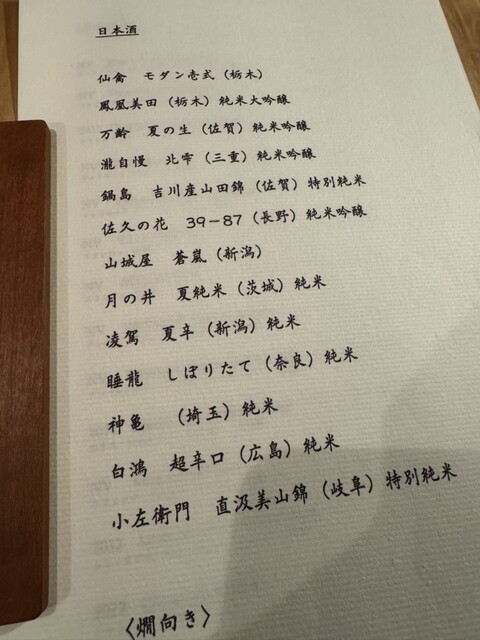 日本酒
仙禽 モダン壱弐（栃木）
鳳凰美田（栃木）純米大吟醸
万齢 夏の生（佐賀）純米吟醸
瀧自慢 北雫（三重）純米吟醸
鍋島 吉川産山田錦（佐賀）特別純米
佐久の花 39－87（長野）純米吟醸
山城屋 蒼嵐（新潟）
月の井 夏純米（茨城）純米
凌駕 夏辛（新潟）純米
睡龍 しぼりたて（奈良）純米
神亀 （埼玉）純米
白鴻 超辛口（広島）純米
小左衛門 直汲美山錦（岐阜）特別純米
〈燗向き〉